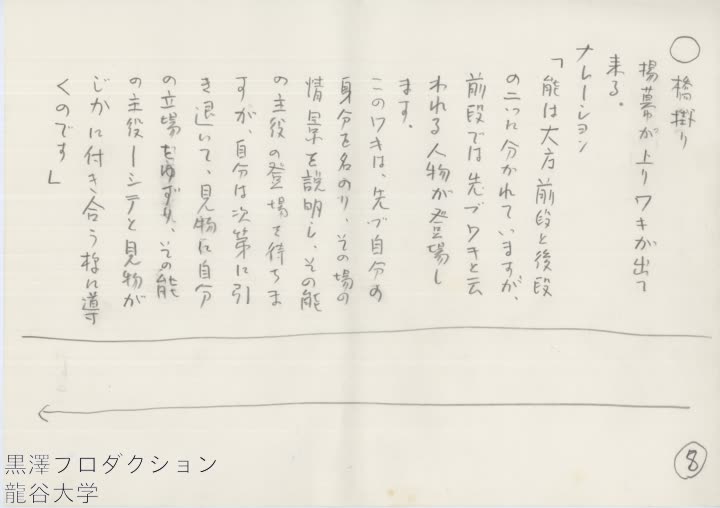 ○ 橋掛り
揚幕が上りワキが出て
来る。
ナレーション
「能は大方前段と後段
の二つに分かれていますが、
前段では先づワキと云
われる人物が登場し
ます。
このワキは、先づ自分の
身分を名のり、その場の
情景を説明し、その能
の主役の登場を待ちま
すが、自分は次第に引
き退いて、見物に自分
の立場をゆずり、その能
の主役―シテと見物が
じかに付き合う様に導
くのです」
8
黒澤プロダクション
龍谷大学